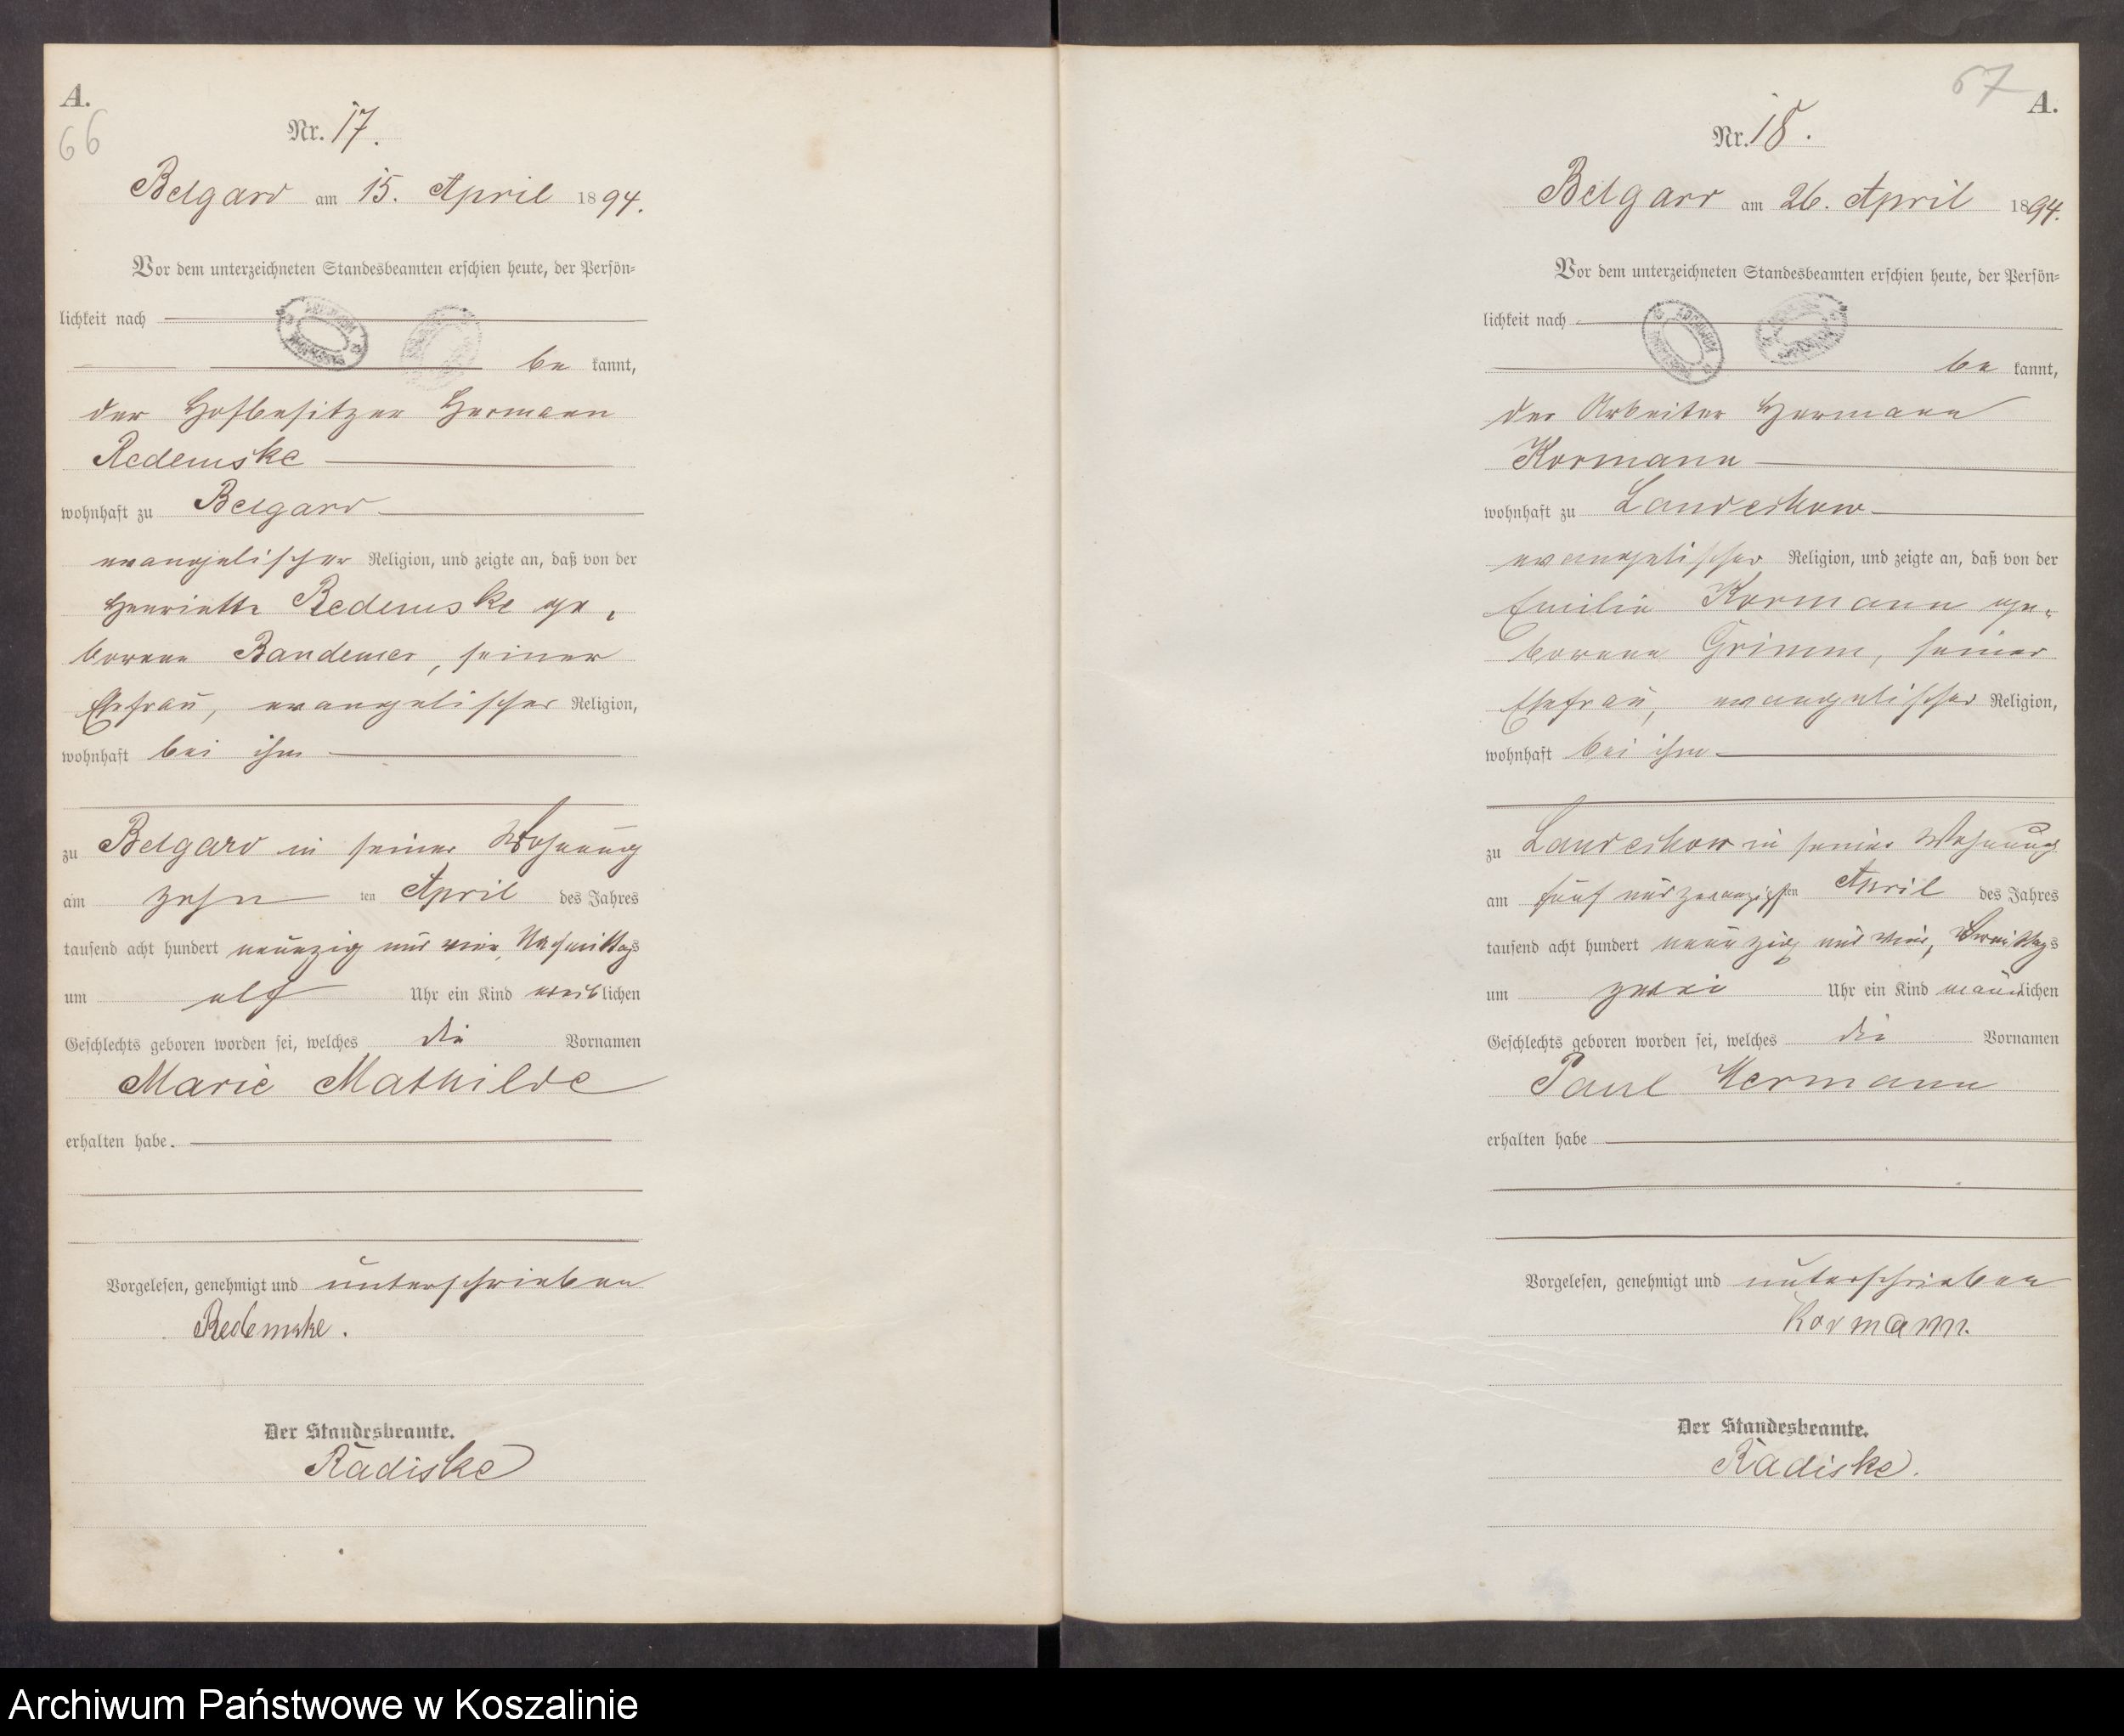 A.
66
Nr. 17.
Belgard am 15. April 1894.
Vor dem unterzeichneten Standesbeamten erschien heute, der Persön-
lichkeit nach
be kannt,
der Hofbesitzer Hermann
Redemske
wohnhaft zu Belgard
evangelischer Religion, und zeigte an, daß von der
Henriette Redemske ge-
borene Bandemer, seiner
Ehefrau, evangelischer Religion,
wohnhaft bei ihm
zu Belgard in seiner Wohnung
am zehn ten April des Jahres
tausend acht hundert neunzig und vier, Nachmittags
um elf Uhr ein Kind weiblichen
Geschlechts geboren worden sei, welches die Vornamen
Marie Mathilde
erhalten habe.
Vorgelesen, genehmigt und unterschrieben
Redemske.
Der Standesbeamte.
Radiske
67
A.
Nr. 18.
Belgard am 26. April 1894.
Vor dem unterzeichneten Standesbeamten erschien heute, der Persön-
lichkeit nach
be kannt,
der Arbeiter Hermann
Kormann
wohnhaft zu Landechow
evangelischer Religion, und zeigte an, daß von der
Emilie Kormann ge-
borene Grimm, seiner
Ehefrau, evangelischer Religion,
wohnhaft bei ihm
zu Landechow in seiner Wohnung
am fünf und zwanzigsten April des Jahres
tausend acht hundert neunzig und vier, Vormittags
um zwei Uhr ein Kind männlichen
Geschlechts geboren worden sei, welches die Vornamen
Paul Hermann
erhalten habe
Vorgelesen, genehmigt und unterschrieben
Kormann.
Der Standesbeamte.
Radiske.
Archiwum Państwowe w Koszalinie